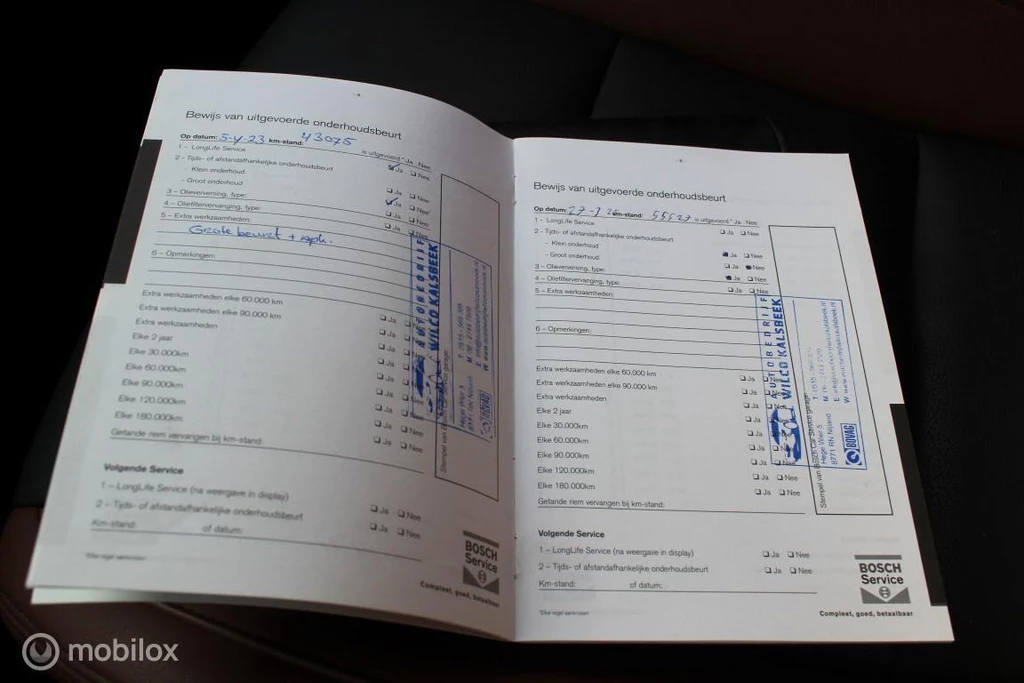 Bewijs van uitgevoerde onderhoudsbeurt
Op datum: 5-4-23 km-stand: 43075
is uitgevoerd * Ja Nee
1 – LongLife Service
2 - Tijds- of afstandafhankelijke onderhoudsbeurt
Ja Nee
- Klein onderhoud
- Groot onderhoud
Ja Nee
3 – Olieverversing, type:
Ja Nee
4 – Oliefiltervervanging, type:
Ja Nee
5 – Extra werkzaamheden:
Ja Nee
Grote beurt +
6 – Opmerkingen:
Extra werkzaamheden elke 60.000 km
Extra werkzaamheden elke 90.000 km
Ja
Extra werkzaamheden
Ja
Elke 2 jaar
Ja
Elke 30.000km
Ja
Elke 60.000km
Ja
Elke 90.000km
Ja
Elke 120.000km
Ja Nee
Elke 180.000km
Ja Nee
Getande riem vervangen bij km-stand:
Ja Nee
AUTOBEDRIJF
WILCO KALSBEEK
Hege Wier 5
9771 RN Nijland
BOVAG
Volgende Service
1 – LongLife Service (na weergave in display)
Ja Nee
2 – Tijds- of afstandafhankelijke onderhoudsbeurt
Ja Nee
Km-stand: of datum:
BOSCH
Service
Compleet, goed, betaalbaar
Bewijs van uitgevoerde onderhoudsbeurt
Op datum: 27-1 km-stand: 55527 is uitgevoerd * Ja Nee
1 – LongLife Service
Ja Nee
2 – Tijds- of afstandafhankelijke onderhoudsbeurt
- Klein onderhoud
Ja Nee
- Groot onderhoud
Ja Nee
3 – Olieverversing, type:
Ja Nee
4 – Oliefiltervervanging, type:
Ja Nee
5 – Extra werkzaamheden:
6 – Opmerkingen:
Extra werkzaamheden elke 60.000 km
Ja
Extra werkzaamheden elke 90.000 km
Ja
Extra werkzaamheden
Ja
Elke 2 jaar
Ja
Elke 30.000km
Ja
Elke 60.000km
Ja
Elke 90.000km
Ja Nee
Elke 120.000km
Ja Nee
Elke 180.000km
Ja Nee
Getande riem vervangen bij km-stand:
AUTOBEDRIJF
WILCO KALSBEEK
Stempel van Bosch Car Service garage:
Hege Wier 5
9771 RN Nijland
BOVAG
Volgende Service
1 – LongLife Service (na weergave in display)
Ja Nee
2 – Tijds- of afstandafhankelijke onderhoudsbeurt
Ja Nee
Km-stand: of datum:
BOSCH
Service
Compleet, goed, betaalbaar
mobilox